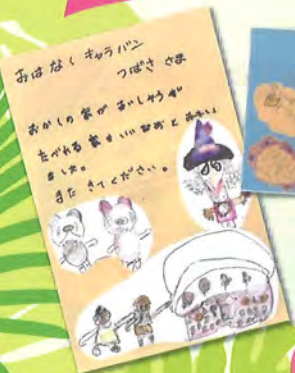 おはなしキャラバン
つばさ さま
おかしの家が おいしそうで
たべれる 家は いいなあと おもい
ました。
また きてください。